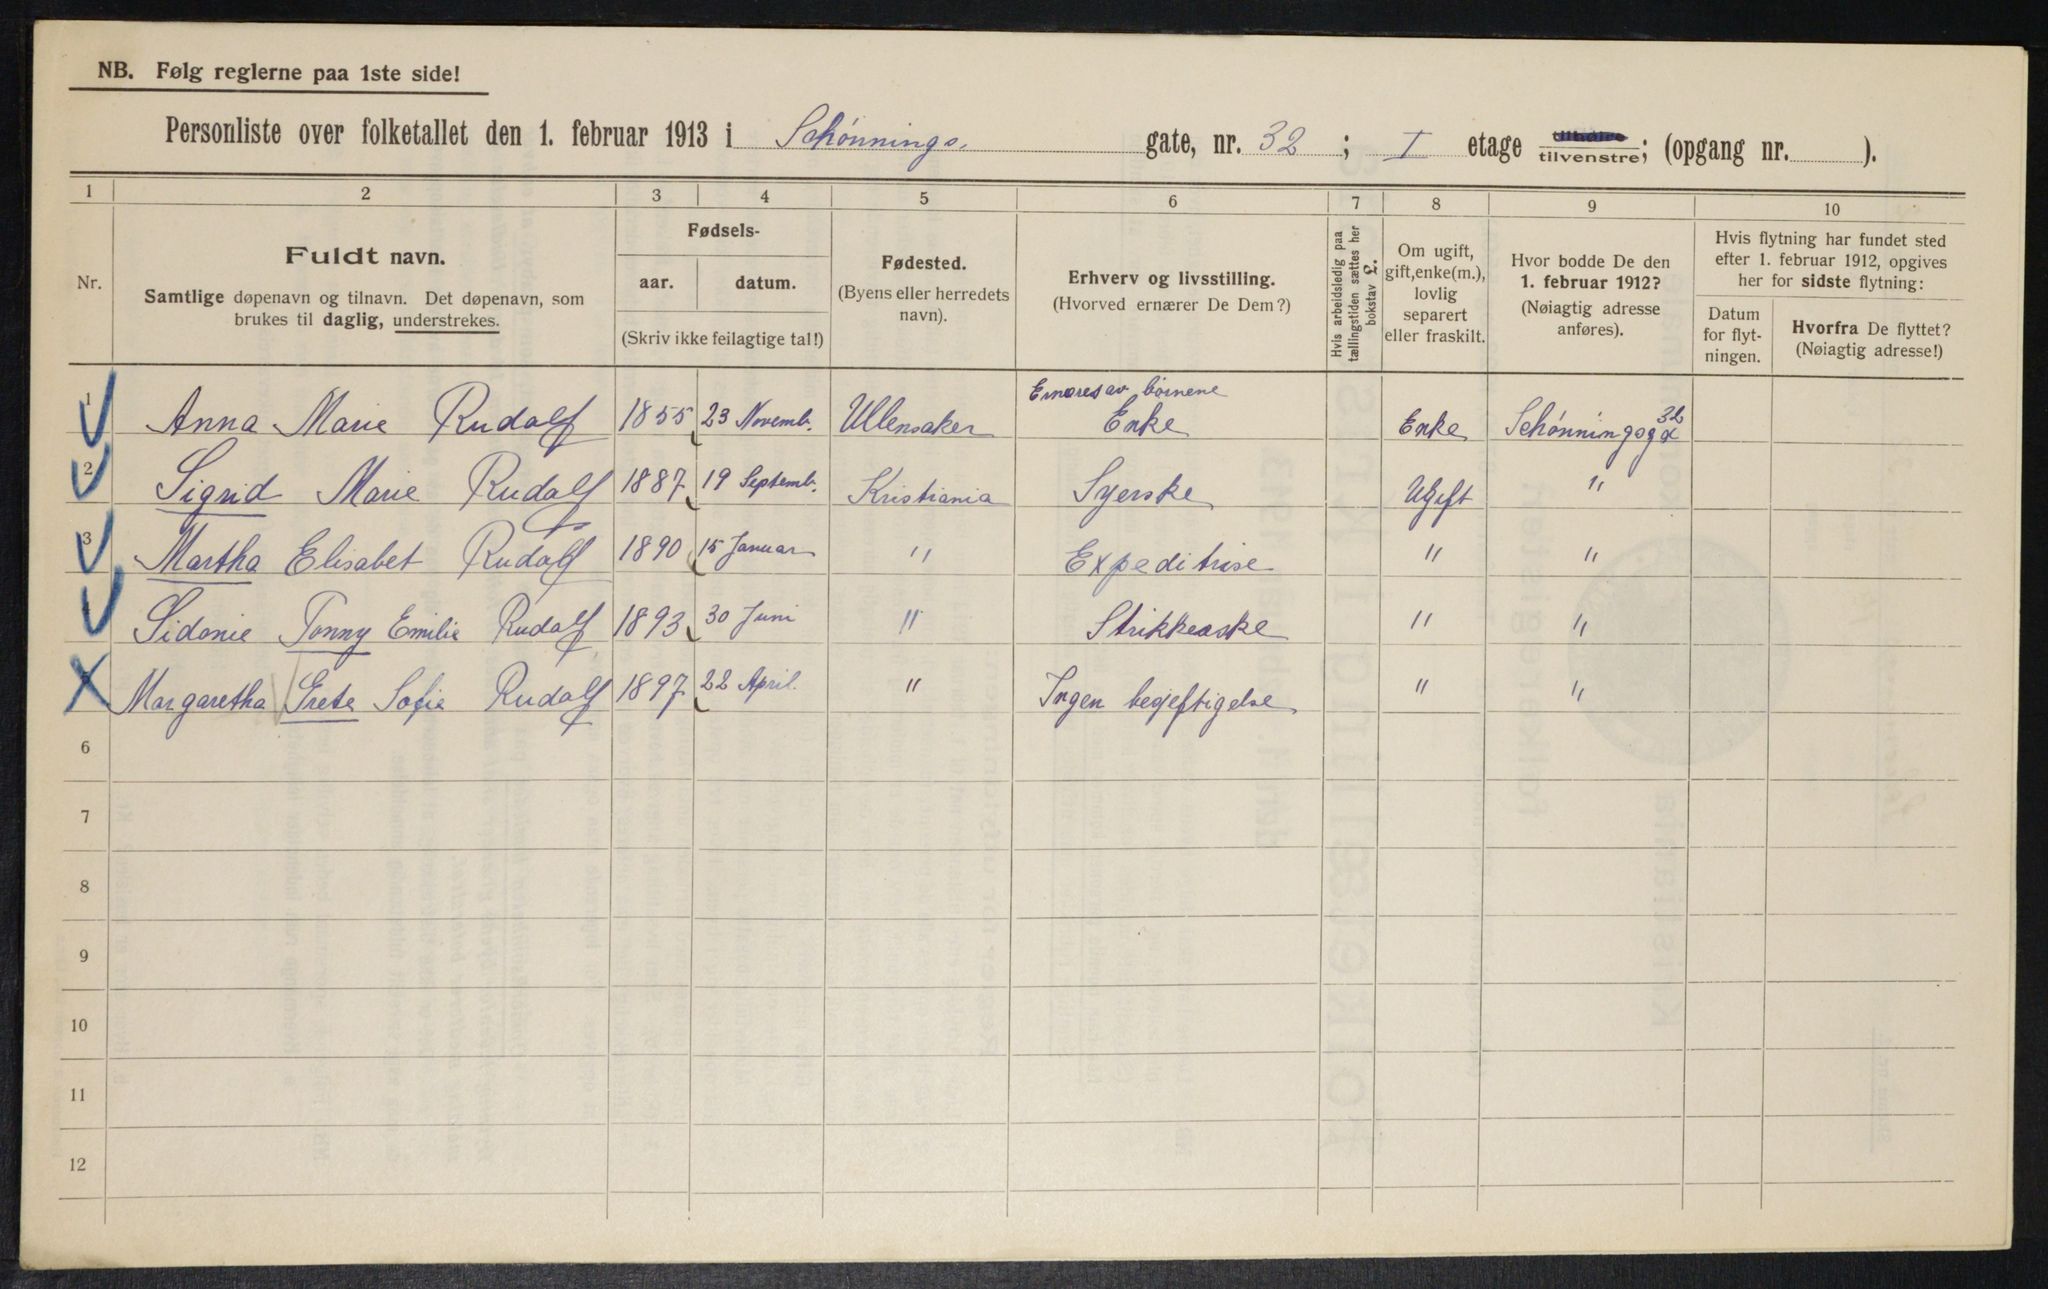 NB. Følg reglerne paa 1ste side!
Personliste over folketallet den 1. februar 1913 i Schønnings. gate, nr. 32 ; I etage tilhøire tilvenstre; (opgang nr. ).
1 2 3 4 5 6 7 8 9 10
Nr.
Fuldt navn.
Samtlige døpenavn og tilnavn. Det døpenavn, som
brukes til daglig, understrekes.
Fødsels-
aar. datum.
(Skriv ikke feilagtige tal!)
Fødested.
(Byens eller herredets
navn).
Erhverv og livsstilling.
(Hvorved ernærer De Dem?)
Hvis arbeidsledig paa
tællingstiden sættes her
bokstav £.
Om ugift,
gift, enke(m.),
lovlig
separert
eller fraskilt.
Hvor bodde De den
1. februar 1912?
(Nøiagtig adresse
anføres).
Hvis flytning har fundet sted
efter 1. februar 1912, opgives
her for sidste flytning:
Datum
for flyt-
ningen.
Hvorfra De flyttet?
(Nøiagtig adresse!)
Ernæres av børnene
1 Anna Marie Rudolf 1855 23 Novemb. Ullensaker Enke Enke Schønningsg 32
2 Sigrid Marie Rudolf 1887 19 Septemb. Kristiania Syerske Ugift "
3 Martha Elisabet Rudolf 1890 15 Januar " Expeditrise " "
Sidonie Tonny Emilie Rudolf 1893 30 Juni " Strikkeaske " "
Margaretha Grete Sofie Rudolf 1897 22 April. " Ingen beskjeftigelse " "
6
7
8
9
10
11
12